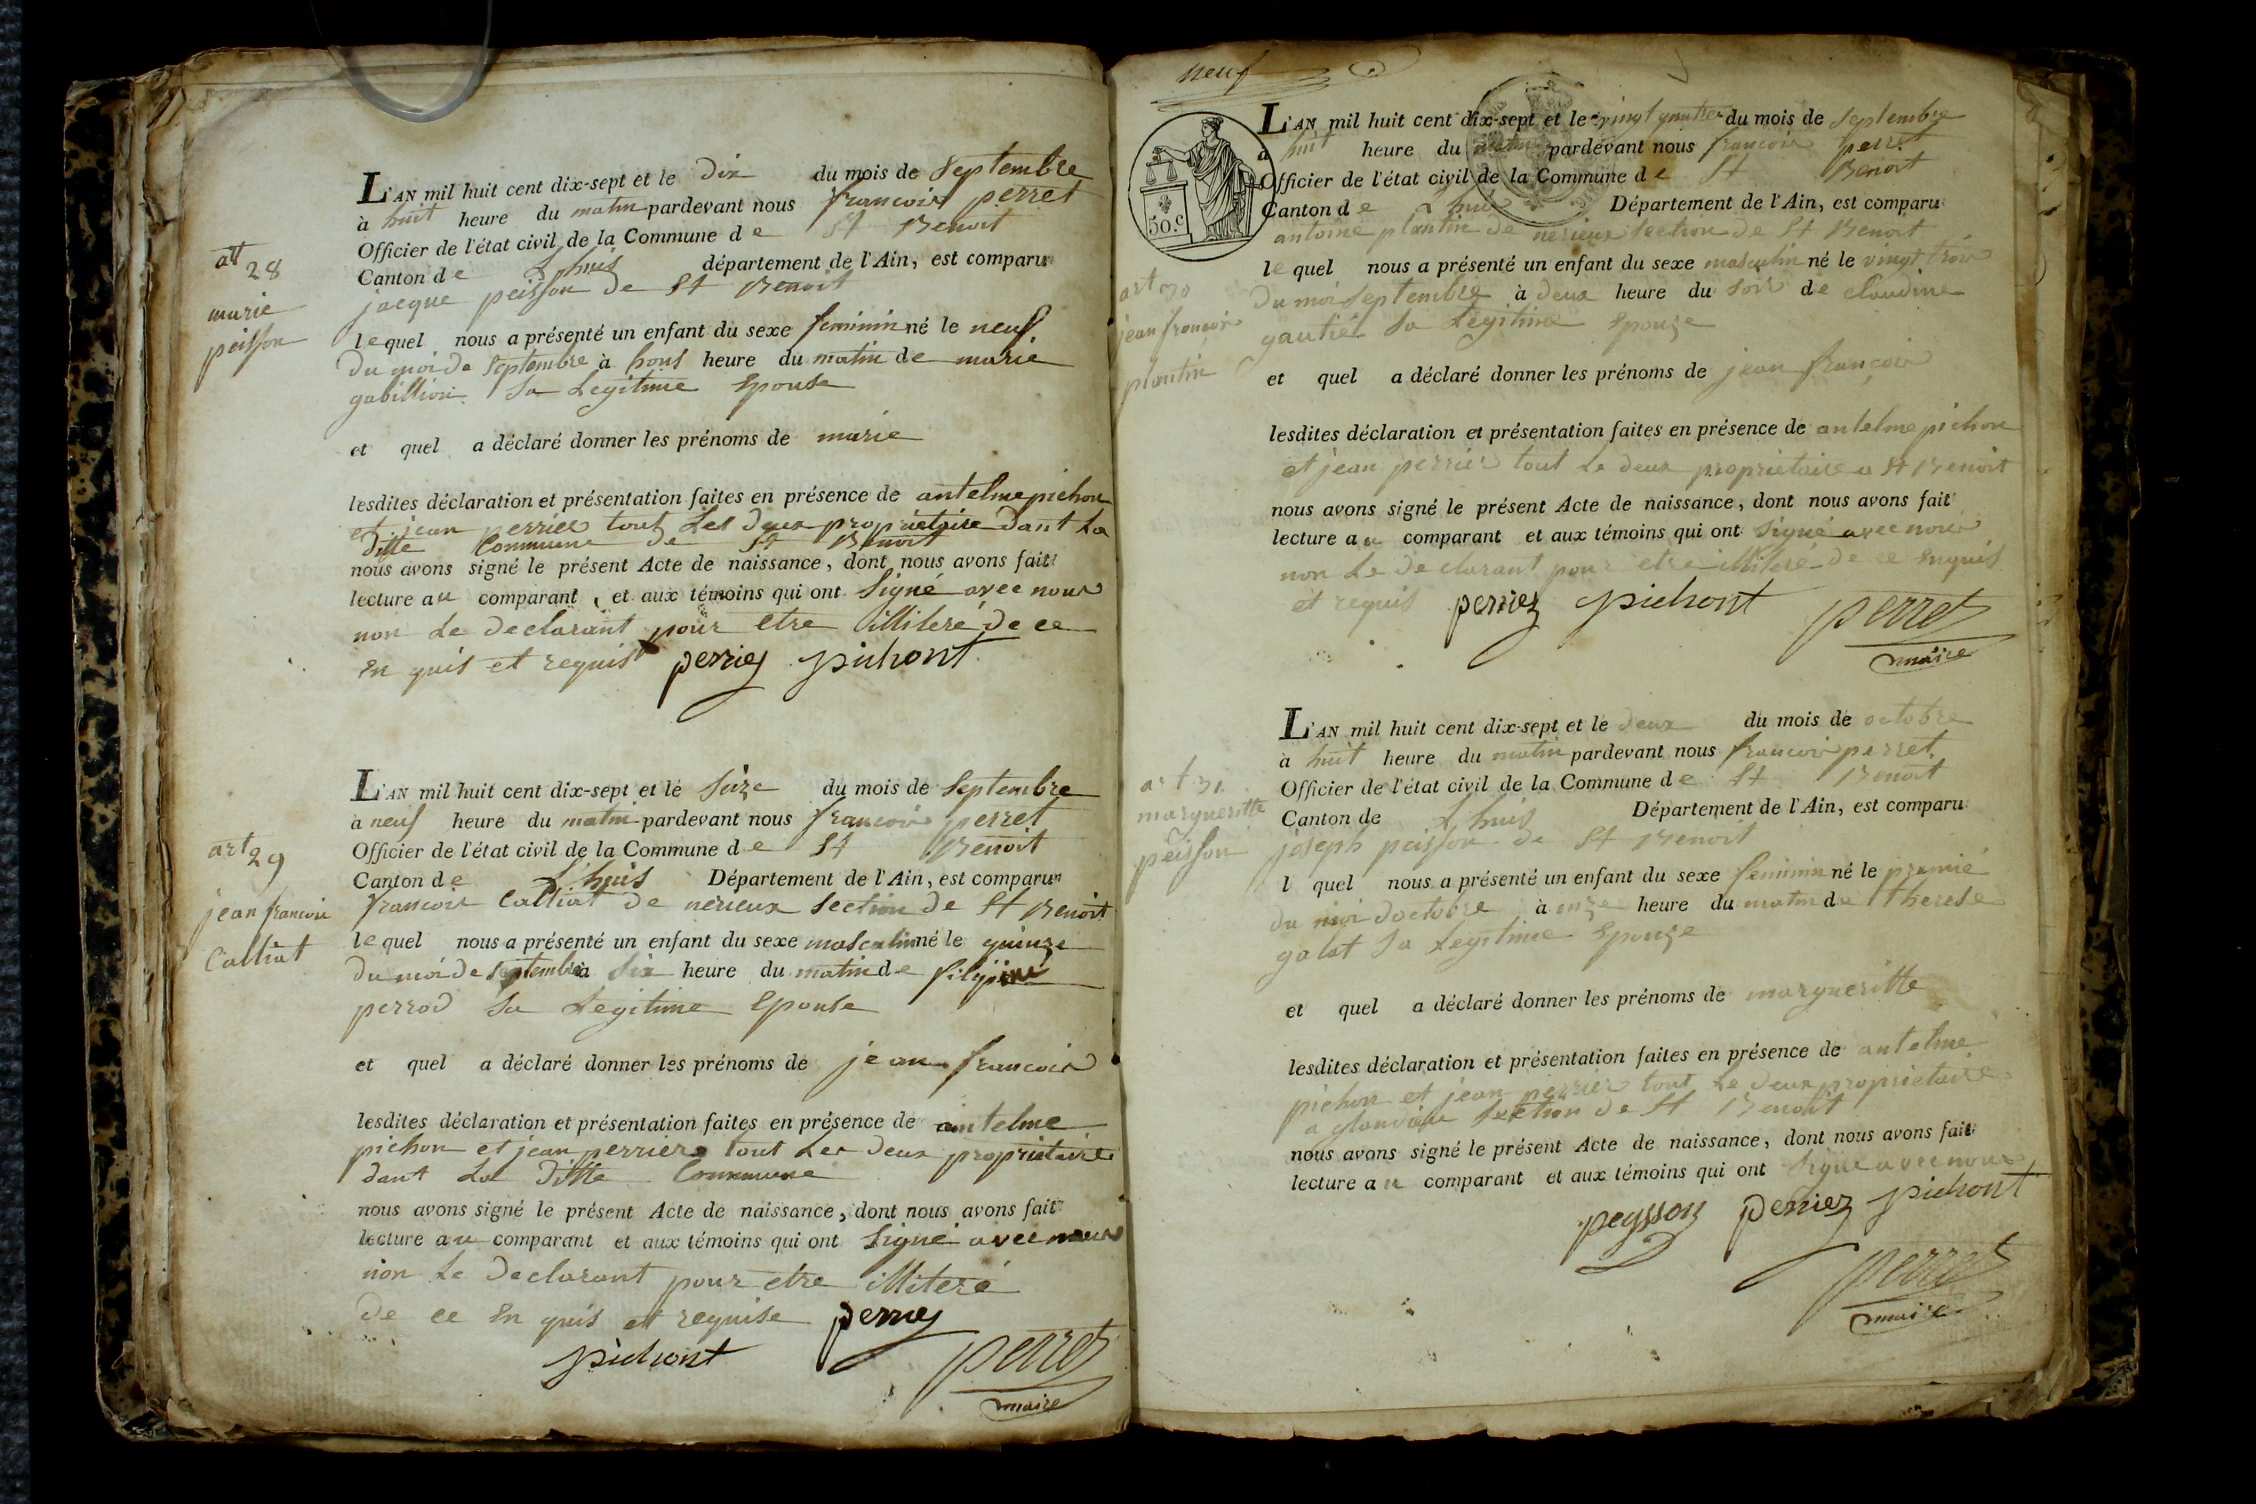 art 28
marie
peisson
L'AN mil huit cent dix-sept et le dix du mois de septembre
à huit heure du matin pardevant nous francois perret
Officier de l'état civil de la Commune de St Benoit
Canton de Lhuis département de l'Ain, est comparu
jacque peisson de St Benoit
lequel nous a présenté un enfant du sexe feminin né le neuf
du moi de septembre à hons heure du matin de marie
gabillion sa Legitime Epouse
et quel a déclaré donner les prénoms de marie
lesdites déclaration et présentation faites en présence de antelme pichon
et jean perrier tout Les deux proprietaire dant La
ditte Commune de St Benoit
nous avons signé le présent Acte de naissance, dont nous avons fait
lecture au comparant, et aux témoins qui ont signé avec nous
non Le declarant pour etre illiteré de ce
En quis et requis perriez pichont
art 29
jean francois
Calliat
L'AN mil huit cent dix-sept et le seize du mois de septembre
à neuf heure du matin pardevant nous francois perret
Officier de l'état civil de la Commune de St Benoit
Canton de Lhuis Département de l'Ain, est comparu
francois Calliat de nerieux section de St Benoit
lequel nous a présenté un enfant du sexe masculin né le quinze
du moi de septembre à six heure du matin de
perrod sa Legitime Epouse
et quel a déclaré donner les prénoms de jean francois
lesdites déclaration et présentation faites en présence de antelme
pichon et jean perrier tout Les deux proprietaire
dant La ditte Commune
nous avons signé le présent Acte de naissance, dont nous avons fait
lecture au comparant et aux témoins qui ont signé avec nous
non Le declarant pour etre illiteré
de ce En quis et requise perriez
pichont perret
maire
neuf
50.c
art 30
jean francois
plantin
L'AN mil huit cent dix-sept et le vingt quatre du mois de septembre
à huit heure du matin pardevant nous francois perret
Officier de l'état civil de la Commune de St Benoit
Canton de Lhuis Département de l'Ain, est comparu
antoine plantin de nerieux section de St Benoit
lequel nous a présenté un enfant du sexe masculin né le vingt trois
du moi septembre à deux heure du soir de claudine
gautié sa Legitime Epouze
et quel a déclaré donner les prénoms de jean françois
lesdites déclaration et présentation faites en présence de antelme pichon
et jean perrier tout Le deux proprietaire a St Benoit
nous avons signé le présent Acte de naissance, dont nous avons fait
lecture au comparant et aux témoins qui ont signé avec nous
non Le declarant pour etre illiteré de ce Enquis
et requis perriez pichont perret
maire
art 31
margueritte
peisson
L'AN mil huit cent dix-sept et le deux du mois de octobre
à huit heure du matin pardevant nous francois perret
Officier de l'état civil de la Commune de St Benoit
Canton de Lhuis Département de l'Ain, est comparu
joseph peisson de St Benoit
l quel nous a présenté un enfant du sexe feminin né le premié
du moi doctobre à onze heure du matin de therese
galat sa Legitime Epouze
et quel a déclaré donner les prénoms de margueritte
lesdites déclaration et présentation faites en présence de antelme
pichon et jean perrier tout Le deux proprietaire
a glandieu section de St Benoit
nous avons signé le présent Acte de naissance, dont nous avons fait
lecture au comparant et aux témoins qui ont signé avec nous
peysson perriez pichont
perret
maire